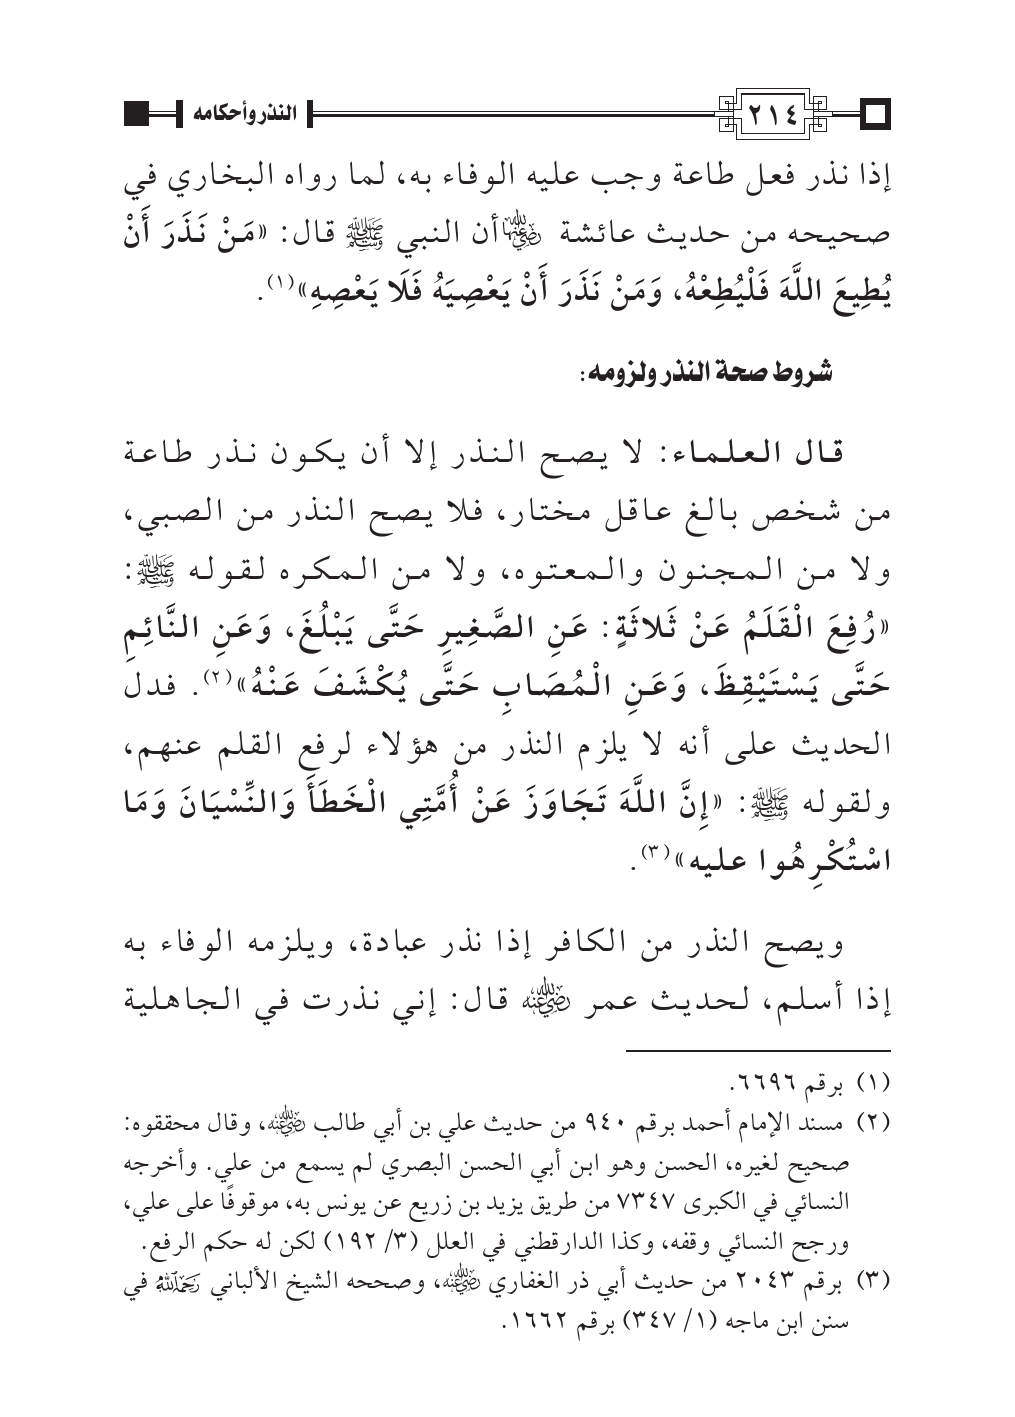 ٢١٤ النذر وأحكامه
إذا نذر فعل طاعة وجب عليه الوفاء به، لما رواه البخاري في
صحيحه من حديث عائشة رضي الله عنها أن النبي ﷺ قال: «مَنْ نَذَرَ أَنْ
يُطِيعَ اللَّهَ فَلْيُطِعْهُ، وَمَنْ نَذَرَ أَنْ يَعْصِيَهُ فَلَا يَعْصِهِ»(١).
شروط صحة النذر ولزومه:
قال العلماء: لا يصح النذر إلا أن يكون نذر طاعة
من شخص بالغ عاقل مختار، فلا يصح النذر من الصبي،
ولا من المجنون والمعتوه، ولا من المكره لقوله ﷺ:
«رُفِعَ الْقَلَمُ عَنْ ثَلاثَةٍ: عَنِ الصَّغِيرِ حَتَّى يَبْلُغَ، وَعَنِ النَّائِمِ
حَتَّى يَسْتَيْقِظَ، وَعَنِ الْمُصَابِ حَتَّى يُكْشَفَ عَنْهُ»(٢). فدل
الحديث على أنه لا يلزم النذر من هؤلاء لرفع القلم عنهم،
ولقوله ﷺ: «إِنَّ اللَّهَ تَجَاوَزَ عَنْ أُمَّتِي الْخَطَأَ وَالنِّسْيَانَ وَمَا
اسْتُكْرِهُوا عليه»(٣).
ويصح النذر من الكافر إذا نذر عبادة، ويلزمه الوفاء به
إذا أسلم، لحديث عمر رضي الله عنه قال: إني نذرت في الجاهلية
(١) برقم ٦٦٩٦.
(٢) مسند الإمام أحمد برقم ٩٤٠ من حديث علي بن أبي طالب رضي الله عنه، وقال محققوه:
صحيح لغيره، الحسن وهو ابن أبي الحسن البصري لم يسمع من علي. وأخرجه
النسائي في الكبرى ٧٣٤٧ من طريق يزيد بن زريع عن يونس به، موقوفًا على علي،
ورجح النسائي وقفه، وكذا الدارقطني في العلل (٣/ ١٩٢) لكن له حكم الرفع.
(٣) برقم ٢٠٤٣ من حديث أبي ذر الغفاري رضي الله عنه، وصححه الشيخ الألباني رحمه الله في
سنن ابن ماجه (١/ ٣٤٧) برقم ١٦٦٢.